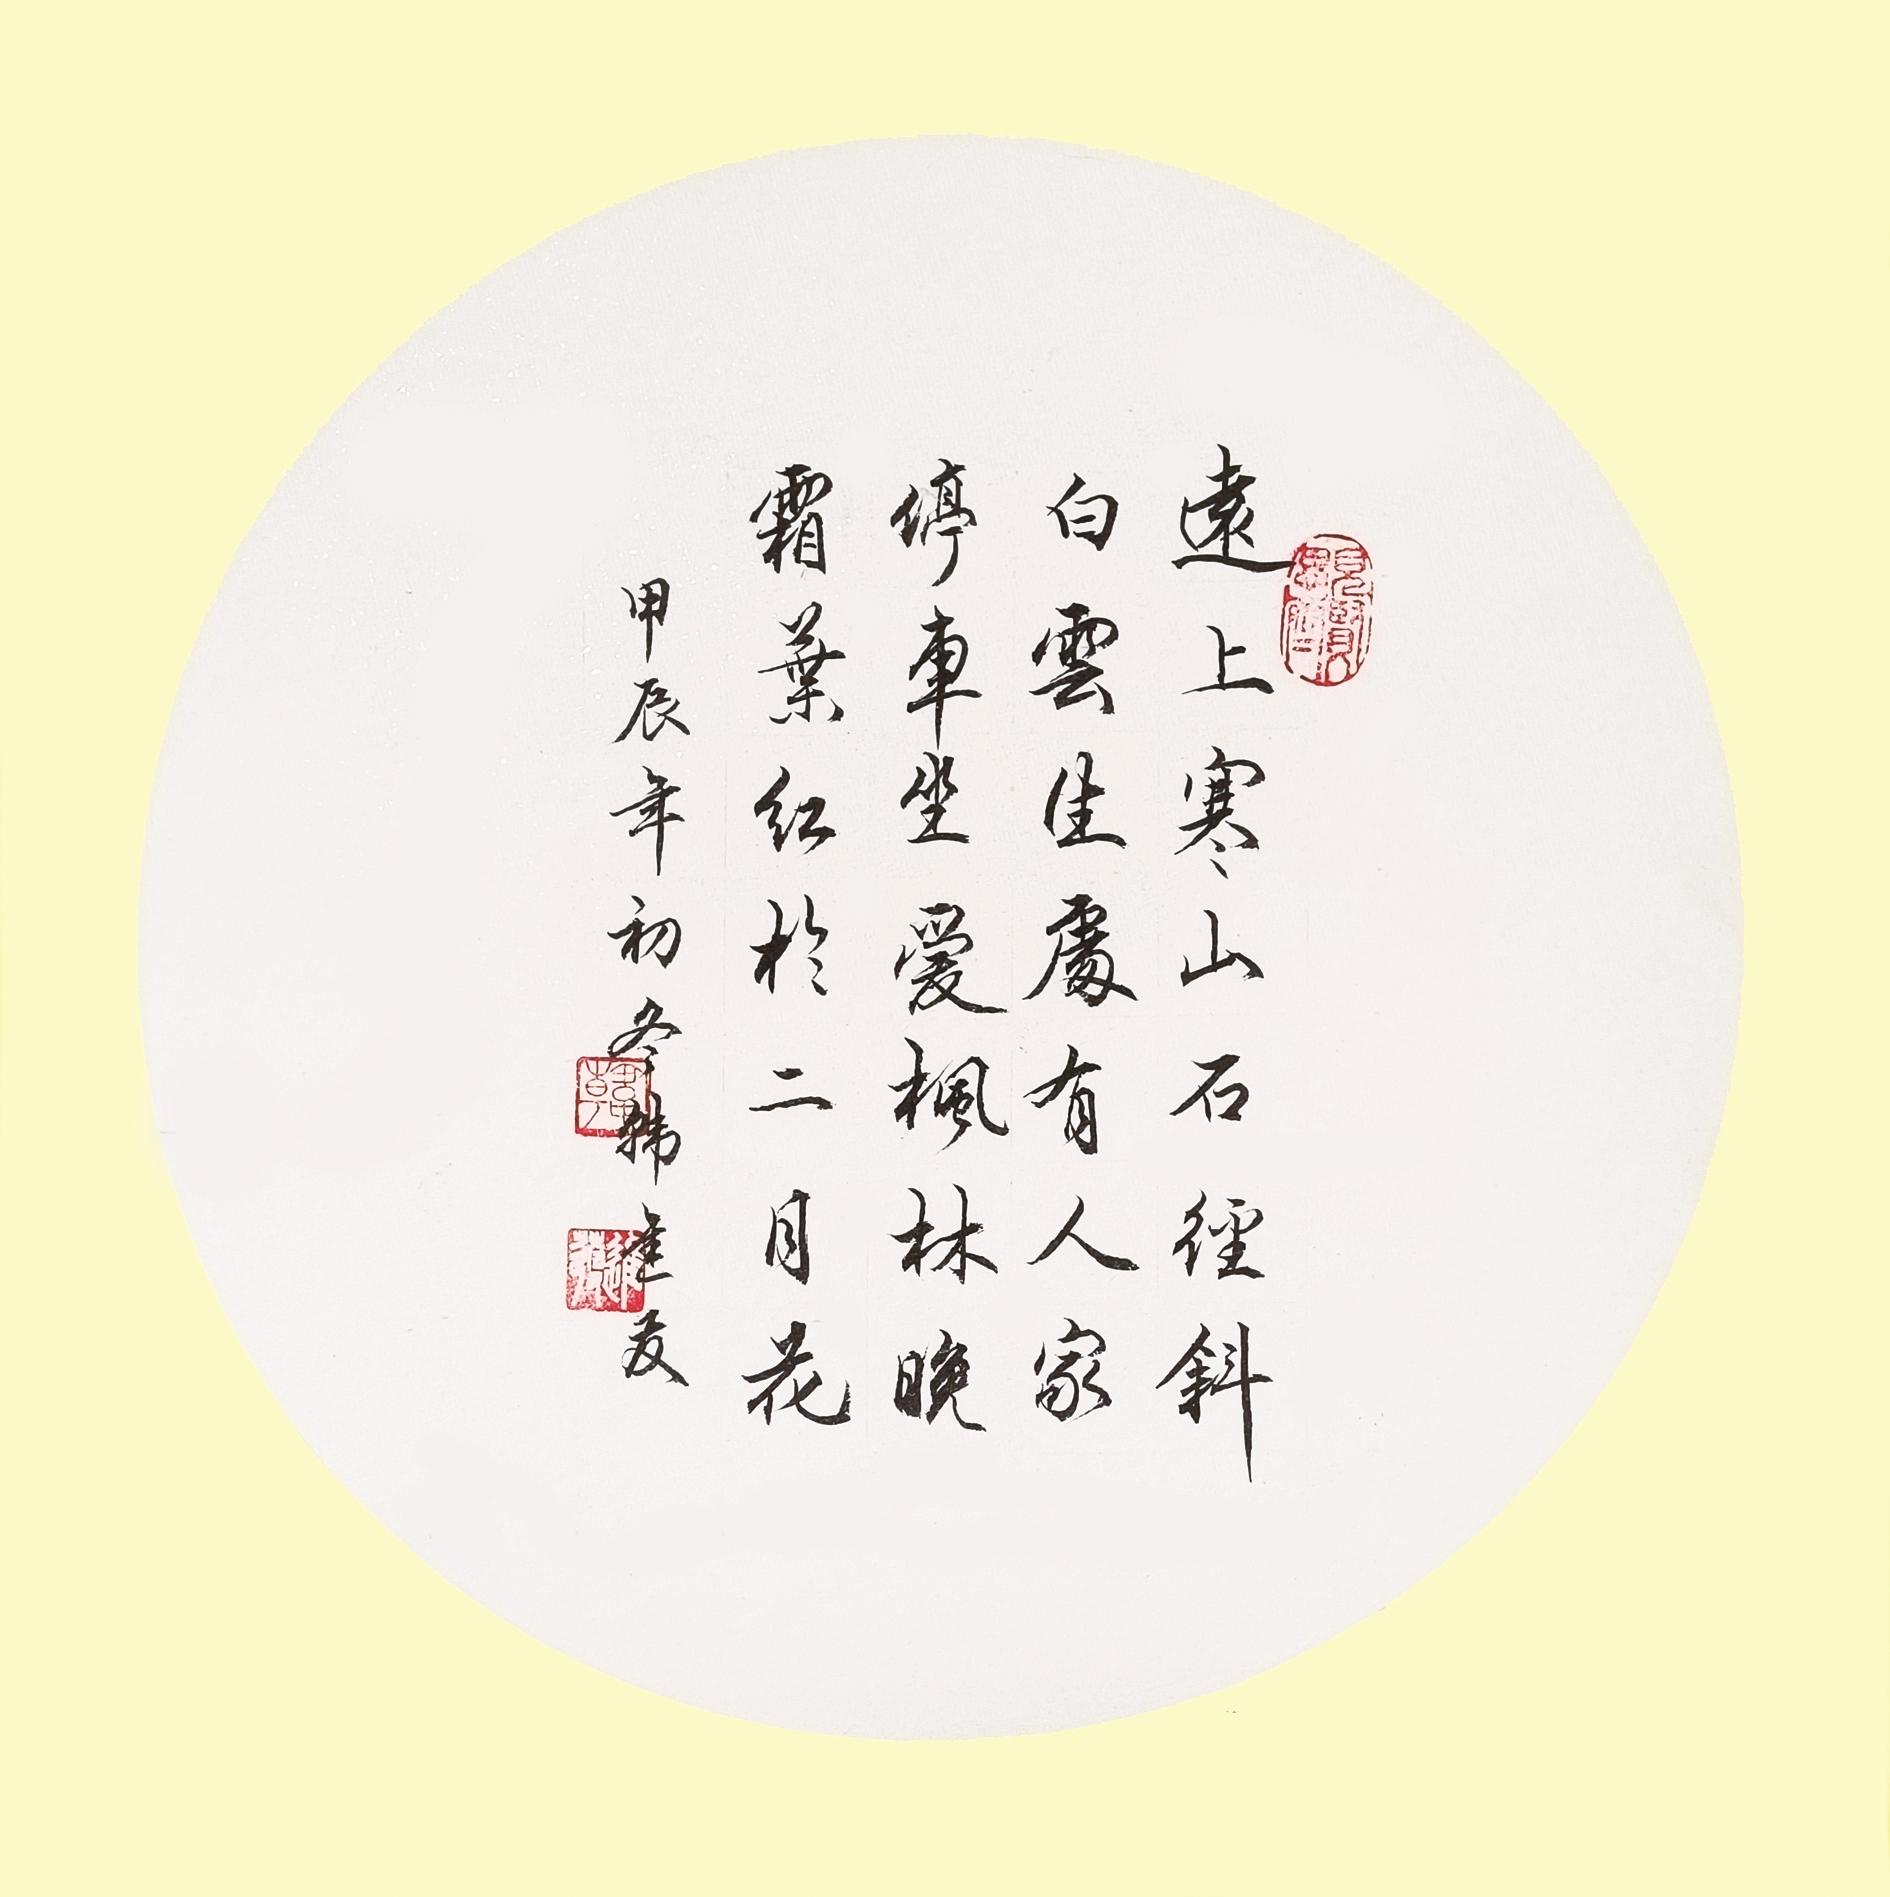 遠上寒山石徑斜
白雲生處有人家
停車坐愛楓林晚
霜葉红於二月花
甲辰年初冬韩
韓